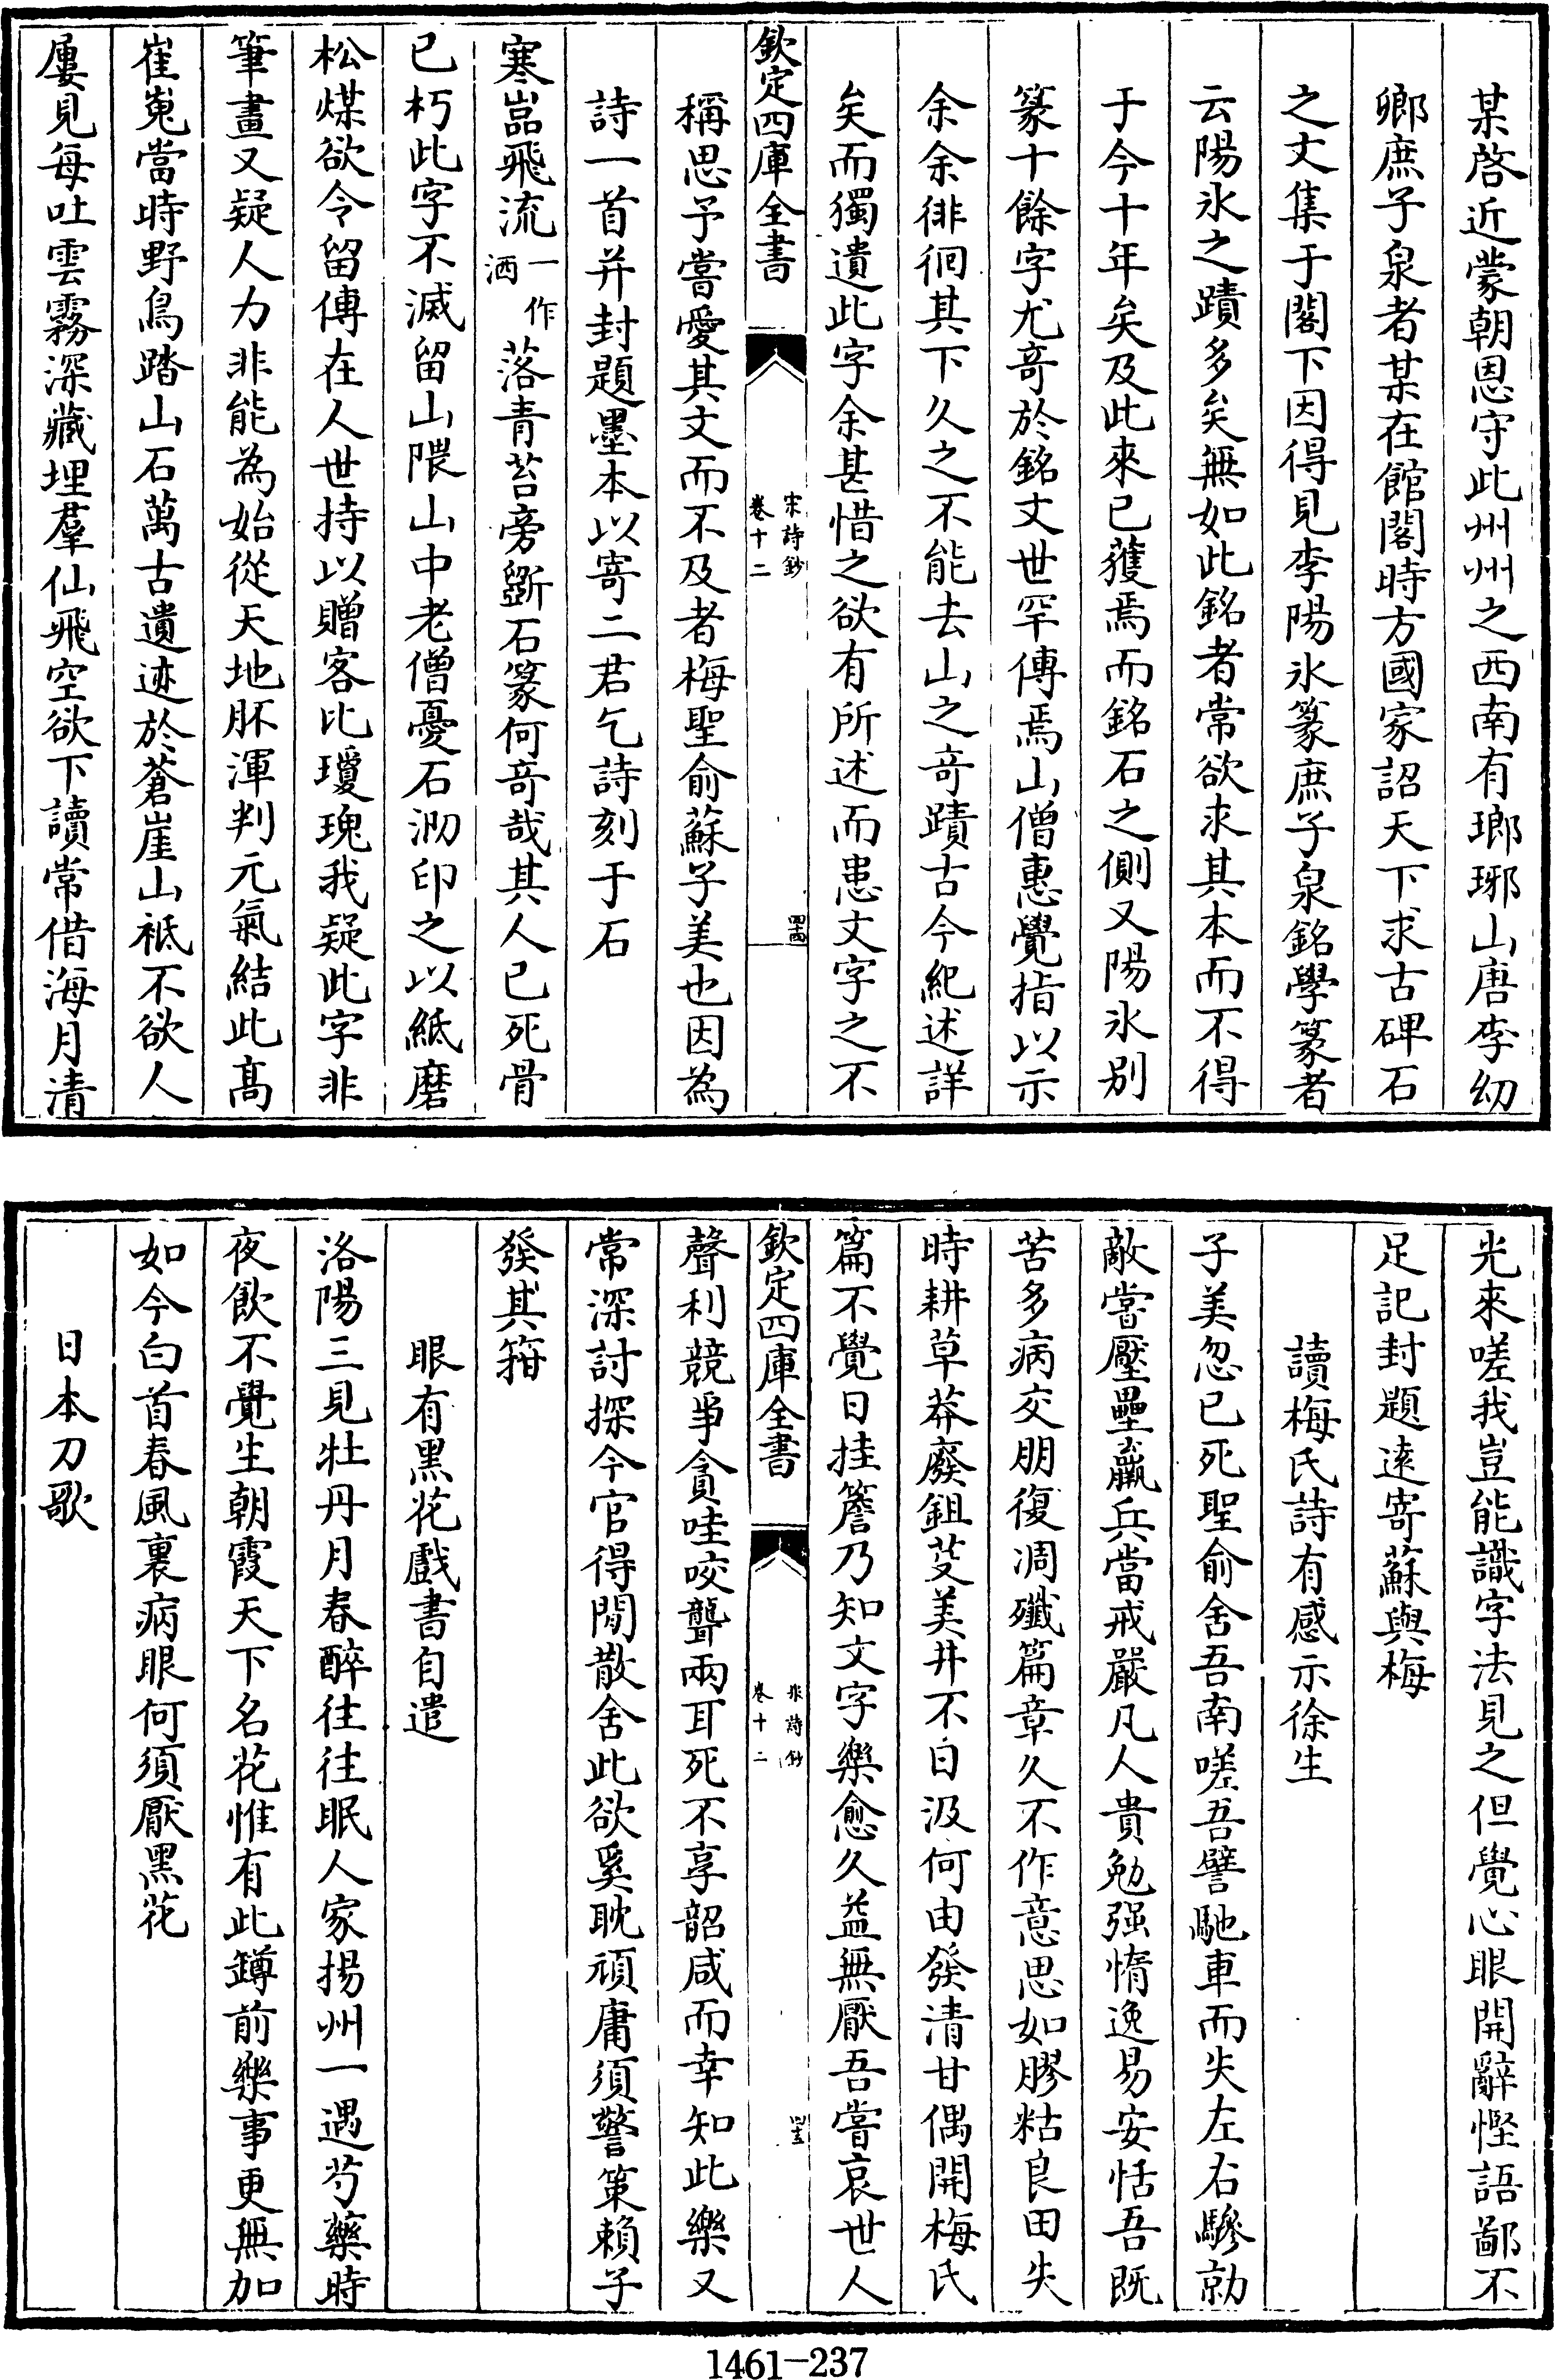 某啓近蒙朝恩守此州州之西南有瑯琊山唐李幼
卿庶子泉者某在館閣時方國家詔天下求古碑石
之文集于閣下因得見李陽氷篆庶子泉銘學篆者
云陽氷之蹟多矣無如此銘者常欲求其本而不得
于今十年矣及此來已獲焉而銘石之側又陽氷别
篆十餘字尤竒於銘文世罕傳焉山僧惠覺指以示
余余徘徊其下久之不能去山之竒蹟古今紀述詳
矣而獨遺此字余甚惜之欲有所述而患文字之不
欽定四庫全書
宋詩鈔
卷十二
四十四
稱思予嘗愛其文而不及者梅聖俞蘇子美也因為
詩一首并封題墨本以寄二君乞詩刻于石
寒嵓飛流一作洒落青苔旁斵石篆何竒哉其人已死骨
已朽此字不滅留山隈山中老僧憂石泐印之以紙磨
松煤欲令留傳在人世持以贈客比瓊瑰我疑此字非
筆畫又疑人力非能為始從天地胚渾判元氣結此髙
崔嵬當時野鳥踏山石萬古遺迹於蒼崖山祗不欲人
屢見每吐雲霧深藏埋羣仙飛空欲下讀常借海月清
光來嗟我豈能識字法見之但覺心眼開辭慳語鄙不
足記封題逺寄蘇與梅
讀梅氏詩有感示徐生
子美忽已死聖俞舍吾南嗟吾譬馳車而失左右驂勍
敵嘗壓壘羸兵當戒嚴凡人貴勉强惰逸易安恬吾既
苦多病交朋復凋殲篇章久不作意思如膠粘良田失
時耕草莽廢鉏芟美井不日汲何由發清甘偶開梅氏
篇不覺日挂簷乃知文字樂愈久益無厭吾嘗哀世人
欽定四庫全書
宋詩鈔
卷十二
四十五
聲利競爭貪哇咬聾兩耳死不享韶咸而幸知此樂又
常深討探今官得閒散舍此欲奚耽頑庸須警策賴子
發其箝
眼有黑花戲書自遣
洛陽三見牡丹月春醉往往眠人家揚州一遇芍藥時
夜飲不覺生朝霞天下名花惟有此罇前樂事更無加
如今白首春風裏病眼何須厭黑花
日本刀歌
1461-237